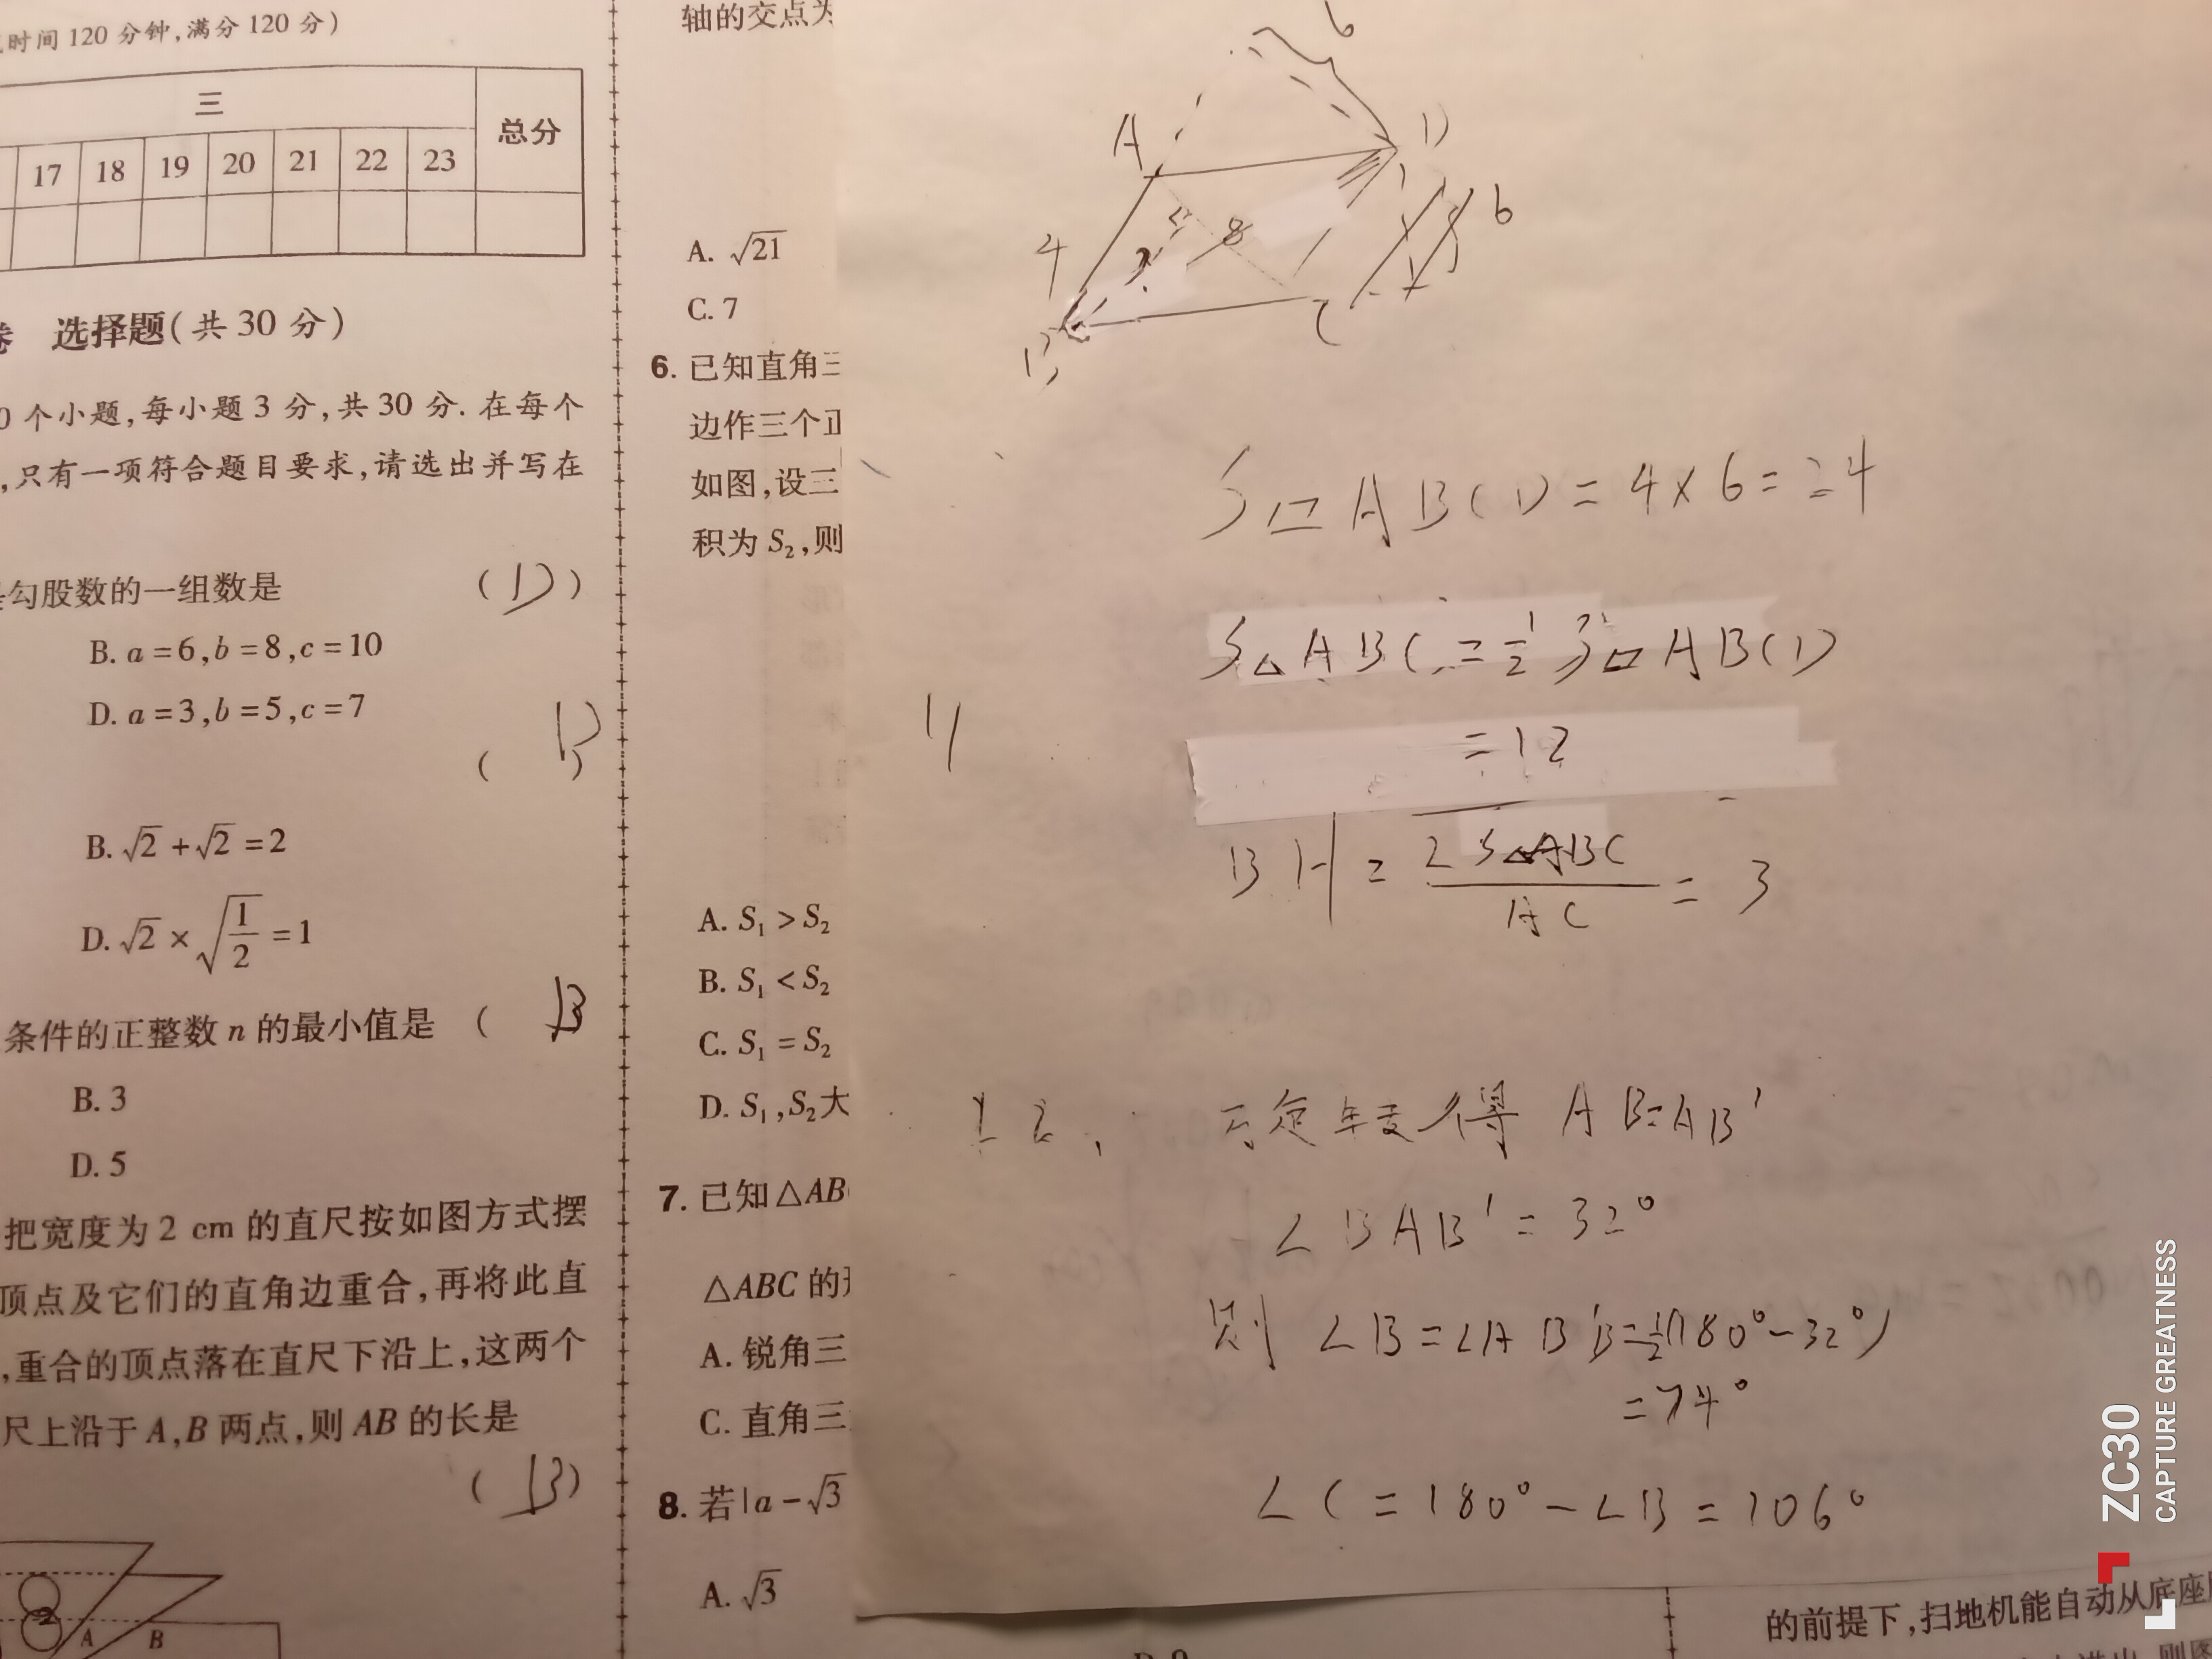 时间 120 分钟,满分 120 分)
三
总分
17 18 19 20 21 22 23
卷 选择题(共 30 分)
0 个小题,每小题 3 分,共 30 分. 在每个
,只有一项符合题目要求,请选出并写在
勾股数的一组数是 (D)
B. a=6,b=8,c=10
D. a=3,b=5,c=7
( D )
B. √2 +√2 =2
D. √2 × √(1/2) =1
条件的正整数 n 的最小值是 ( B
B. 3
D. 5
把宽度为 2 cm 的直尺按如图方式摆
顶点及它们的直角边重合,再将此直
,重合的顶点落在直尺下沿上,这两个
尺上沿于 A,B 两点,则 AB 的长是
( B )
2
A B
轴的交点为
A. √21
C. 7
6. 已知直角三
边作三个正
如图,设三
积为 S₂,则
A. S₁ > S₂
B. S₁ < S₂
C. S₁ = S₂
D. S₁,S₂大
7. 已知△AB
△ABC 的
A. 锐角三
C. 直角三
8. 若|a-√3
A. √3
6
A D
4 8 6
B C
S▱ABCD=4×6=24
S△ABC=½S▱ABCD
=12
11
BH = 2S△ABC/AC = 3
12、 旋转得 AB=AB'
∠BAB'=32°
则 ∠B=∠AB'B=½(180°-32°)
=74°
∠C=180°-∠B=106°
的前提下,扫地机能自动从底座
ZC30
CAPTURE GREATNESS